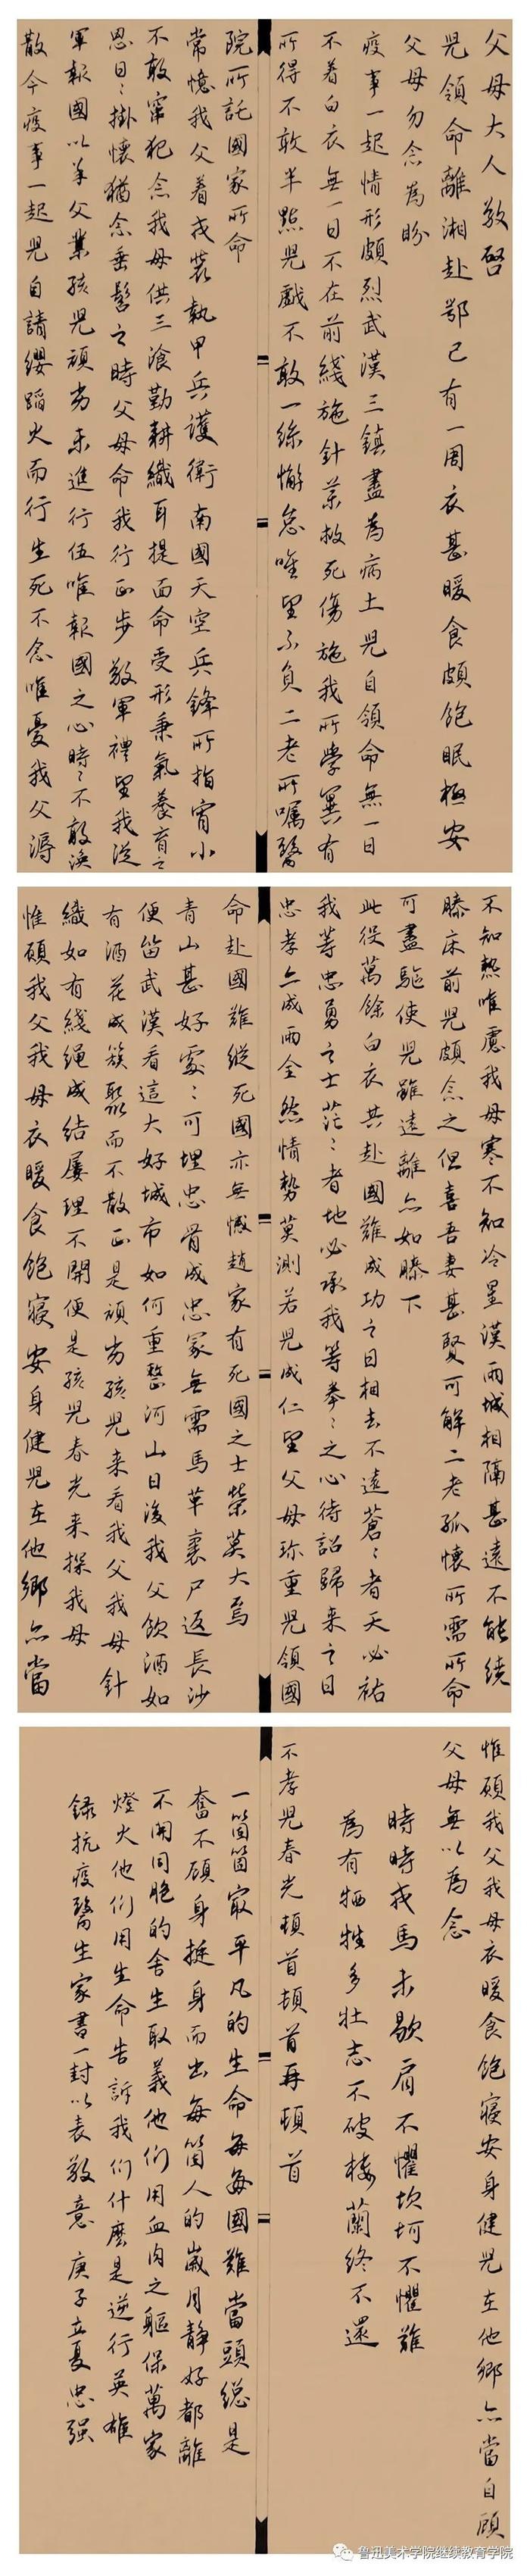 父母大人敬啓
兒領命離湘赴鄂已有一周衣甚暖食頗飽眠極安
父母勿念為盼
疫事一起情形頗烈武漢三鎮盡為病土兒自領命無一日
不着白衣無一日不在前綫施針藥救死傷施我所學冀有
所得不敢半點兒戲不敢一絲懈怠唯望不負二老所囑醫
院所託國家所命
常憶我父着戎裝執甲兵護衛南國天空兵鋒所指宵小
不敢窜犯念我母供三飡勤耕織耳提面命受形秉氣養育之
恩日〻掛懷猶念垂髫之時父母命我行正步敬軍禮望我從
軍報國以羊父業孩兒頑劣未進行伍唯報國之心時〻不敢渙
散今疫事一起兒自請纓蹈火而行生死不念唯憂我父溽
不知熱唯慮我母寒不知冷星漢兩城相隔甚遠不能繞
膝床前兒頗念之但喜吾妻甚賢可解二老孤懷所需所命
可盡驅使兒雖遠離亦如膝下
此役萬餘白衣共赴國難成功之日相去不遠蒼〻者天必祐
我等忠勇之士茫〻者地必承我等拳〻之心待詔歸来之日
忠孝亦成兩全然情勢莫測若兒成仁望父母珎重兒領國
命赴國難縱死國亦無憾趙家有死國之士榮莫大焉
青山甚好處〻可埋忠骨成忠冢無需馬革裹尸返長沙
便留武漢看這大好城市如何重整河山日後我父飲酒如
有酒花成簇聚而不散正是頑劣孩兒来看我父我母針
織如有綫繩成結屢理不開便是孩兒春光来探我母
惟願我父我母衣暖食飽寢安身健兒在他鄉亦當
惟願我父我母衣暖食飽寢安身健兒在他鄉亦當自顧
父母無以為念
時時戎馬未歇肩不懼坎坷不懼難
為有牺牲多壮志不破樓蘭終不還
不孝兒春光頓首頓首再頓首
一箇箇最平凡的生命每每國難當頭總是
奮不顧身挺身而出每箇人的歲月靜好都離
不開同胞的舍生取義他们用血肉之軀保萬家
燈火他们用生命告訴我们什麽是逆行英雄
録抗疫醫生家書一封以表敬意 庚子立夏忠强
鲁迅美术学院继续教育学院